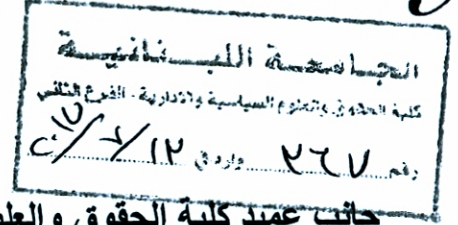 الجامعة اللبنانية
كلية الحقوق والعلوم السياسية والادارية - الفرع الثاني
رقم ٣٦٧ وارد في
جانب عميد كلية الحقوق والعلو